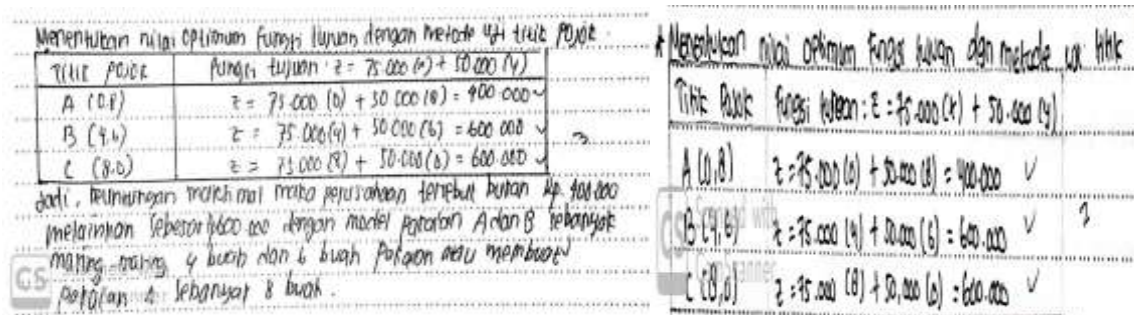 Menentukan nilai optimum fungsi tujuan dengan metode uji titik pojok.
Titik Pojok
Fungsi tujuan: z = 75.000 (x) + 50.000 (y)
A (0,8)
z = 75.000 (0) + 50.000 (8) = 400.000 ✓
B (4,6)
z = 75.000 (4) + 50.000 (6) = 600.000 ✓
3
C (8,0)
z = 75.000 (8) + 50.000 (0) = 600.000 ✓
Jadi, keuntungan maksimal maka perusahaan tersebut bukan Rp. 400.000
melainkan sebesar 600.000 dengan model pakaian A dan B sebanyak
masing-masing 4 buah dan 6 buah pakaian atau membuat
pakaian A sebanyak 8 buah.
CS
* Menentukan nilai optimum fungsi tujuan dgn metode uji titik
Titik Pojok
Fungsi tujuan: z = 75.000 (x) + 50.000 (y)
A (0,8)
z = 75.000 (0) + 50.000 (8) = 400.000 ✓
B (4,6)
z = 75.000 (4) + 50.000 (6) = 600.000 ✓
C (8,0)
z = 75.000 (8) + 50.000 (0) = 600.000 ✓
CS